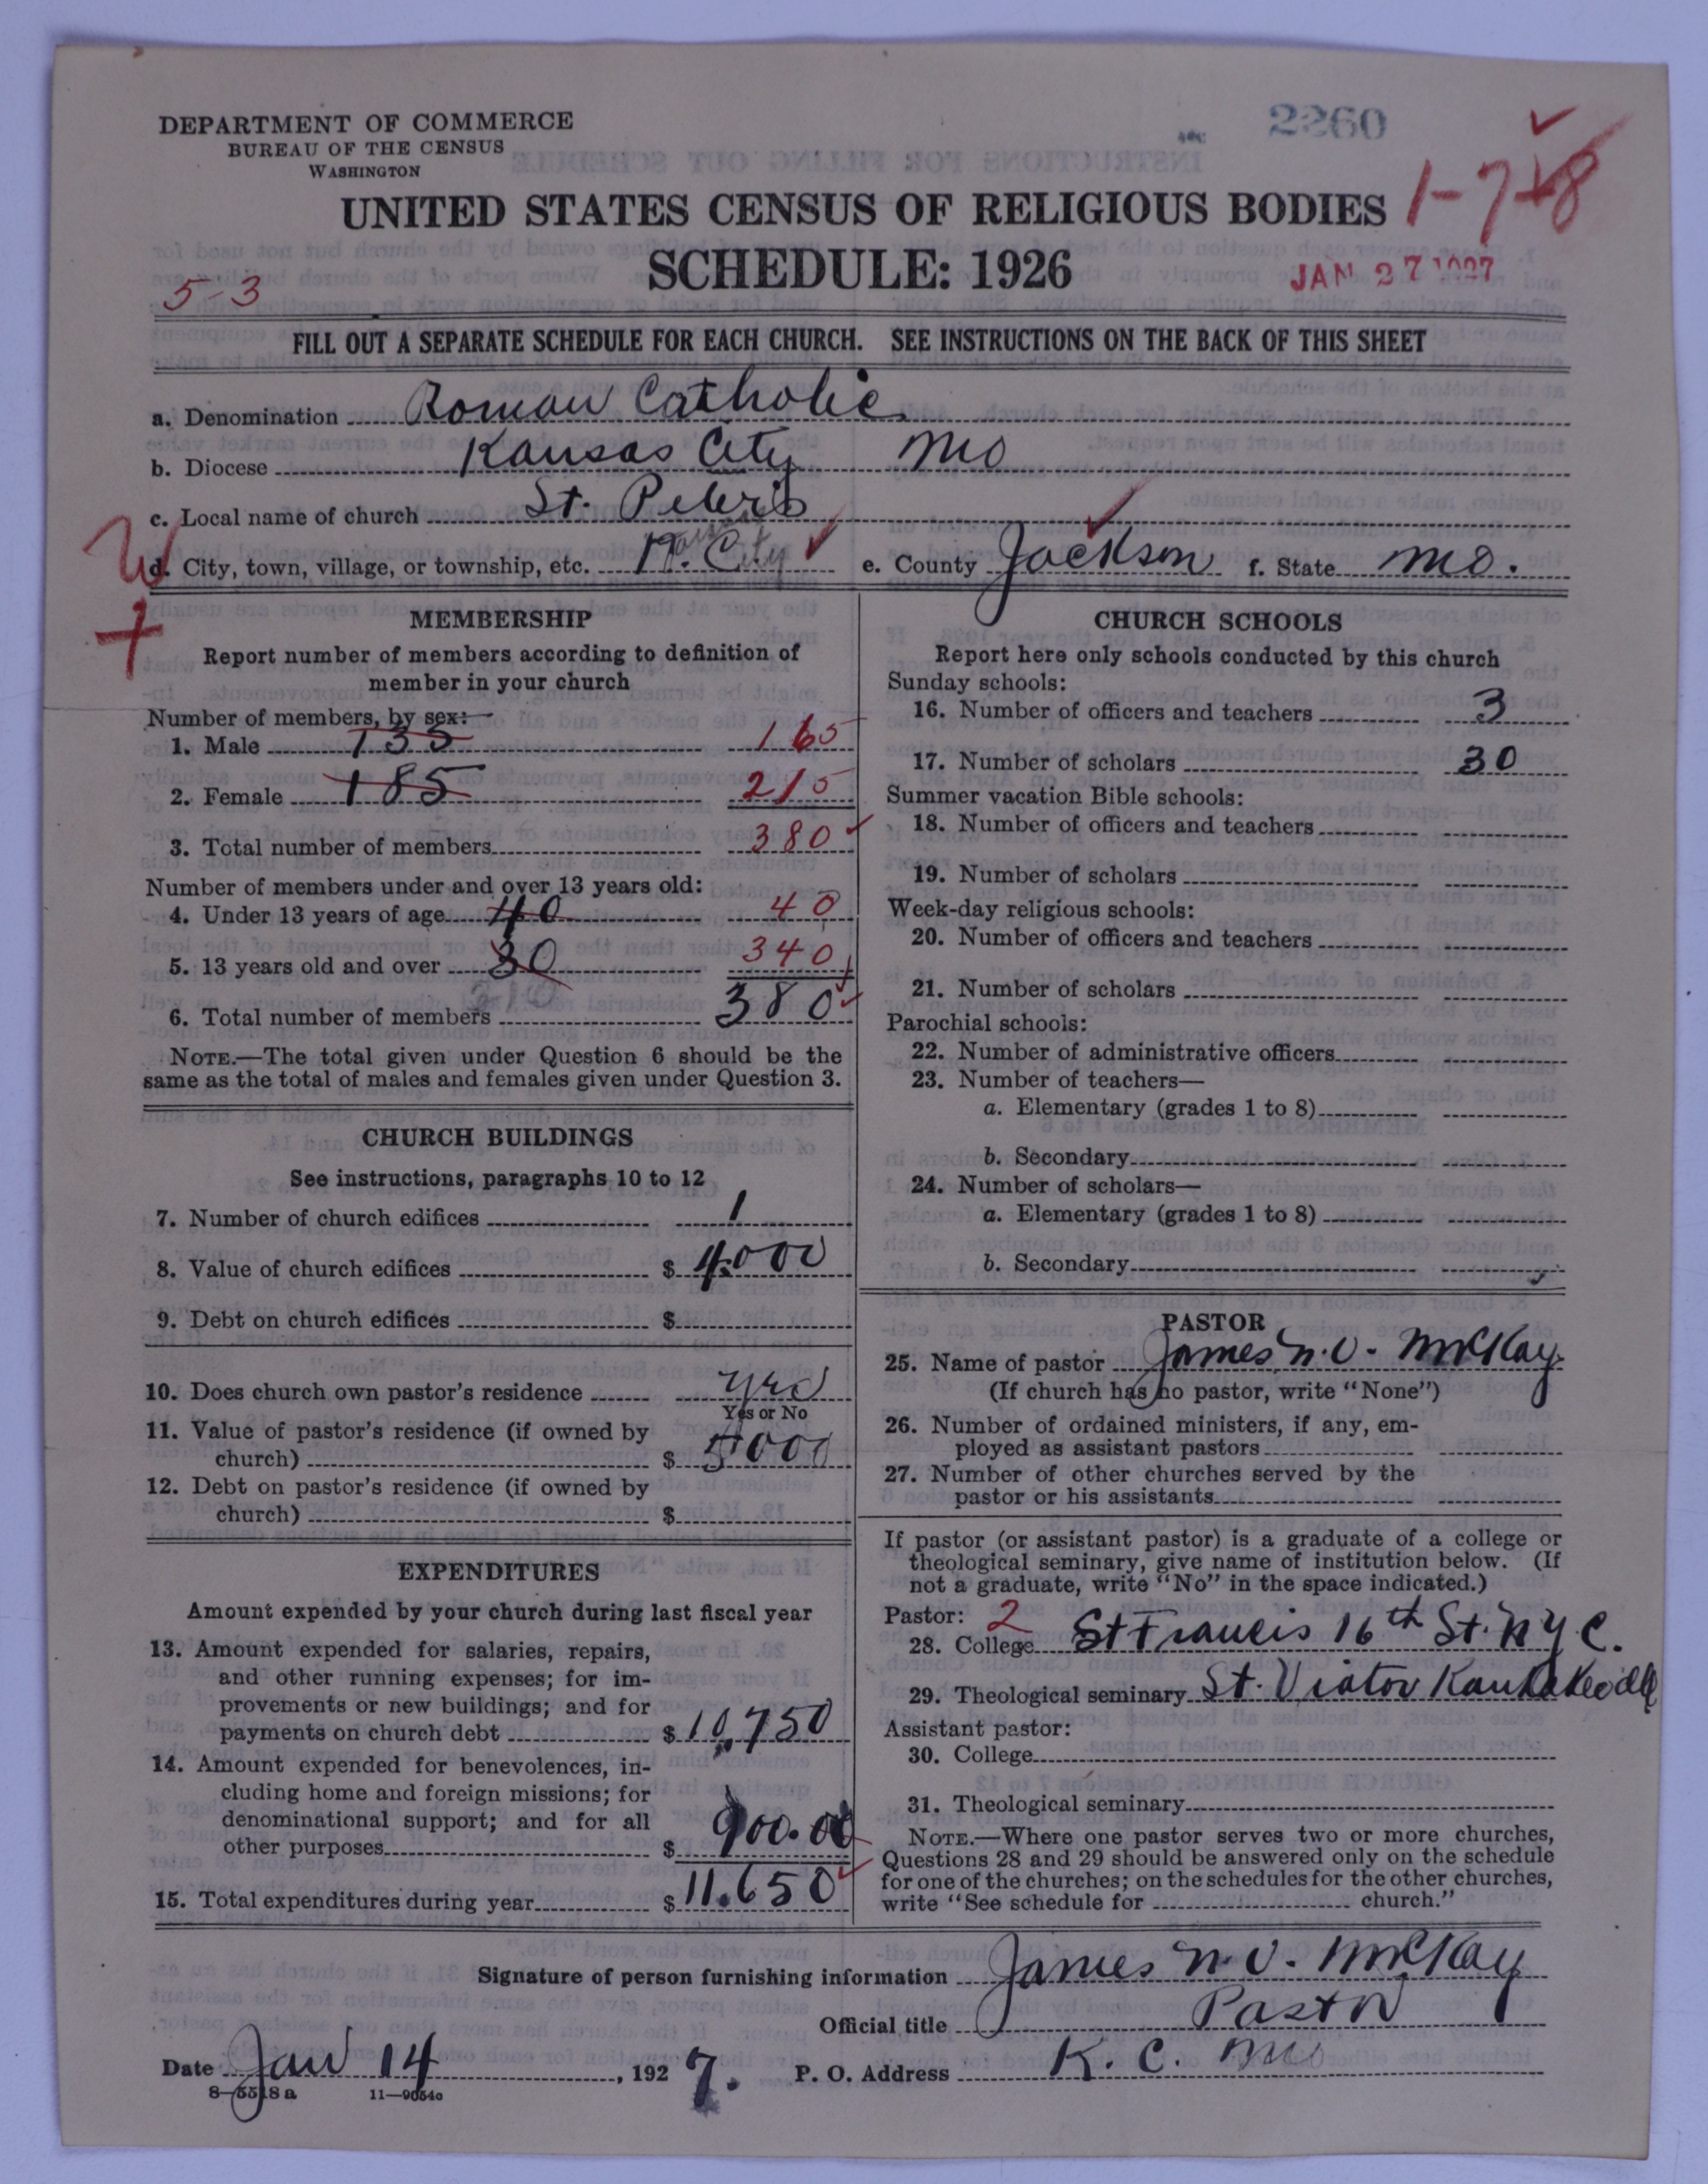 2260
DEPARTMENT OF COMMERCE
BUREAU OF THE CENSUS
WASHINGTON
UNITED STATES CENSUS OF RELIGIOUS BODIES 1-7-28
SCHEDULE: 1926
5-3
JAN 27 1927
FILL OUT A SEPARATE SCHEDULE FOR EACH CHURCH. SEE INSTRUCTIONS ON THE BACK OF THIS SHEET
a. Denomination Roman Catholic
b. Diocese Kansas City Mo
c. Local name of church St. Peter's
d. City, town, village, or township, etc. K. City e. County Jackson f. State Mo.
W
+
MEMBERSHIP
Report number of members according to definition of
member in your church
Number of members, by sex:
1. Male 135 165
2. Female 185 215
3. Total number of members 380
Number of members under and over 13 years old:
4. Under 13 years of age 40 40
5. 13 years old and over 30 340
6. Total number of members 380
NOTE.—The total given under Question 6 should be the
same as the total of males and females given under Question 3.
CHURCH BUILDINGS
See instructions, paragraphs 10 to 12
7. Number of church edifices 1
8. Value of church edifices $ 4000
9. Debt on church edifices $
10. Does church own pastor's residence yes
Yes or No
11. Value of pastor's residence (if owned by
church) $ 5000
12. Debt on pastor's residence (if owned by
church) $
EXPENDITURES
Amount expended by your church during last fiscal year
13. Amount expended for salaries, repairs,
and other running expenses; for im-
provements or new buildings; and for
payments on church debt $ 10,750
14. Amount expended for benevolences, in-
cluding home and foreign missions; for
denominational support; and for all
other purposes $ 900.00
15. Total expenditures during year $ 11.650
CHURCH SCHOOLS
Report here only schools conducted by this church
Sunday schools:
16. Number of officers and teachers 3
17. Number of scholars 30
Summer vacation Bible schools:
18. Number of officers and teachers
19. Number of scholars
Week-day religious schools:
20. Number of officers and teachers
21. Number of scholars
Parochial schools:
22. Number of administrative officers
23. Number of teachers—
a. Elementary (grades 1 to 8)
b. Secondary
24. Number of scholars—
a. Elementary (grades 1 to 8)
b. Secondary
PASTOR
25. Name of pastor James N.V. McKay
(If church has no pastor, write "None")
26. Number of ordained ministers, if any, em-
ployed as assistant pastors
27. Number of other churches served by the
pastor or his assistants
If pastor (or assistant pastor) is a graduate of a college or
theological seminary, give name of institution below. (If
not a graduate, write "No" in the space indicated.)
Pastor: 2
28. College St Francis 16th St. N Y C.
29. Theological seminary St. Viator Kankakee Ill
Assistant pastor:
30. College
31. Theological seminary
NOTE.—Where one pastor serves two or more churches,
Questions 28 and 29 should be answered only on the schedule
for one of the churches; on the schedules for the other churches,
write "See schedule for church."
Signature of person furnishing information James N.V. McKay
Official title Pastor
Date Jan 14, 1927. P. O. Address K. C. Mo
8—5518 a 11—9054a